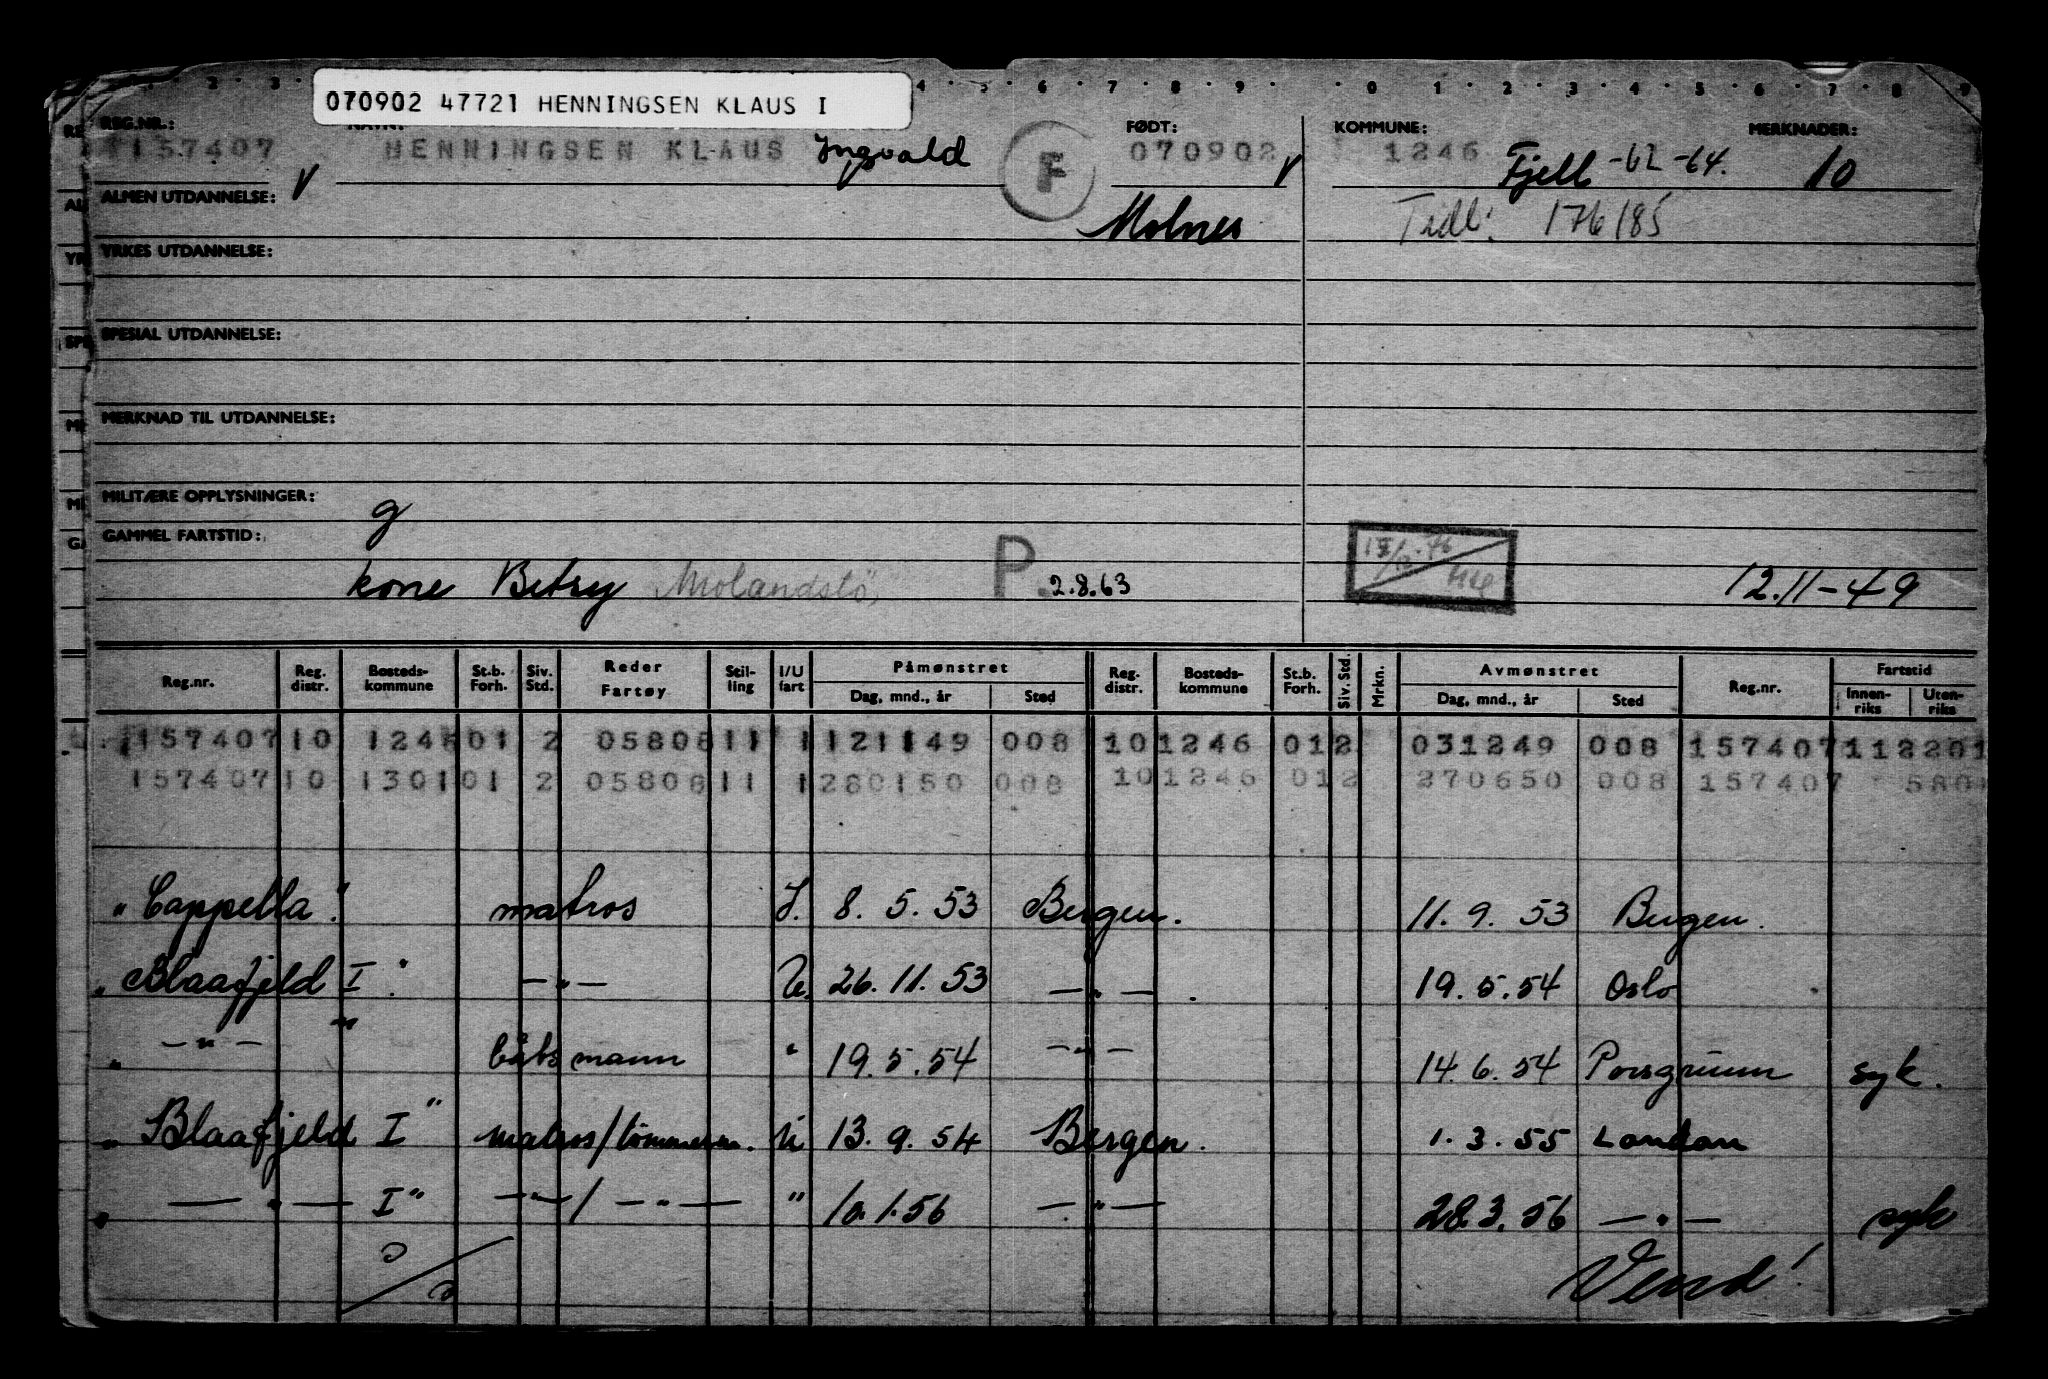 070902 47721 HENNINGSEN KLAUS I
REG.NR.: NAVN: FØDT: KOMMUNE: MERKNADER:
157407 HENNINGSEN KLAUS Ingvald F 070902 1246 Fjell -62 -64. 10
ALMEN UTDANNELSE: V Molnes Tidl: 176185
YRKES UTDANNELSE:
SPESIAL UTDANNELSE:
MERKNAD TIL UTDANNELSE:
MILITÆRE OPPLYSNINGER: g
GAMMEL FARTSTID:
kone Betsy P 2.8.63 12.11-49
Reg.nr. Reg. distr. Bosteds-kommune St.b. Forh. Siv. Std. Reder Fartøy Stil-ling I/U fart Påmønstret Dag, mnd., år Sted Reg. distr. Bosteds-kommune St.b. Forh. Siv. Std. Mrkn. Avmønstret Dag, mnd., år Sted Reg.nr. Fartstid Innen-riks Uten-riks
157407 10 1246 01 2 05808 11 1 121149 008 10 1246 01 2 031249 008 157407 112201
157407 10 1301 01 2 05808 11 1 280150 008 10 1246 01 2 270650 008 157407 580
"Cappella." matros I. 8. 5. 53 Bergen. 11. 9. 53 Bergen.
"Blaafjeld I". -"- U. 26. 11. 53 -"-. 19. 5. 54 Oslo
" -"- " båtsmann " 19. 5. 54 -"- 14. 6. 54 Porsgrunn syk.
"Blaafjeld I" matros/tömmerm. U 13. 9. 54 Bergen. 1. 3. 55 London
" -"- I" -"-/-"- " 10.1.56 -"- 28.3.56 -"- syk
Vend!